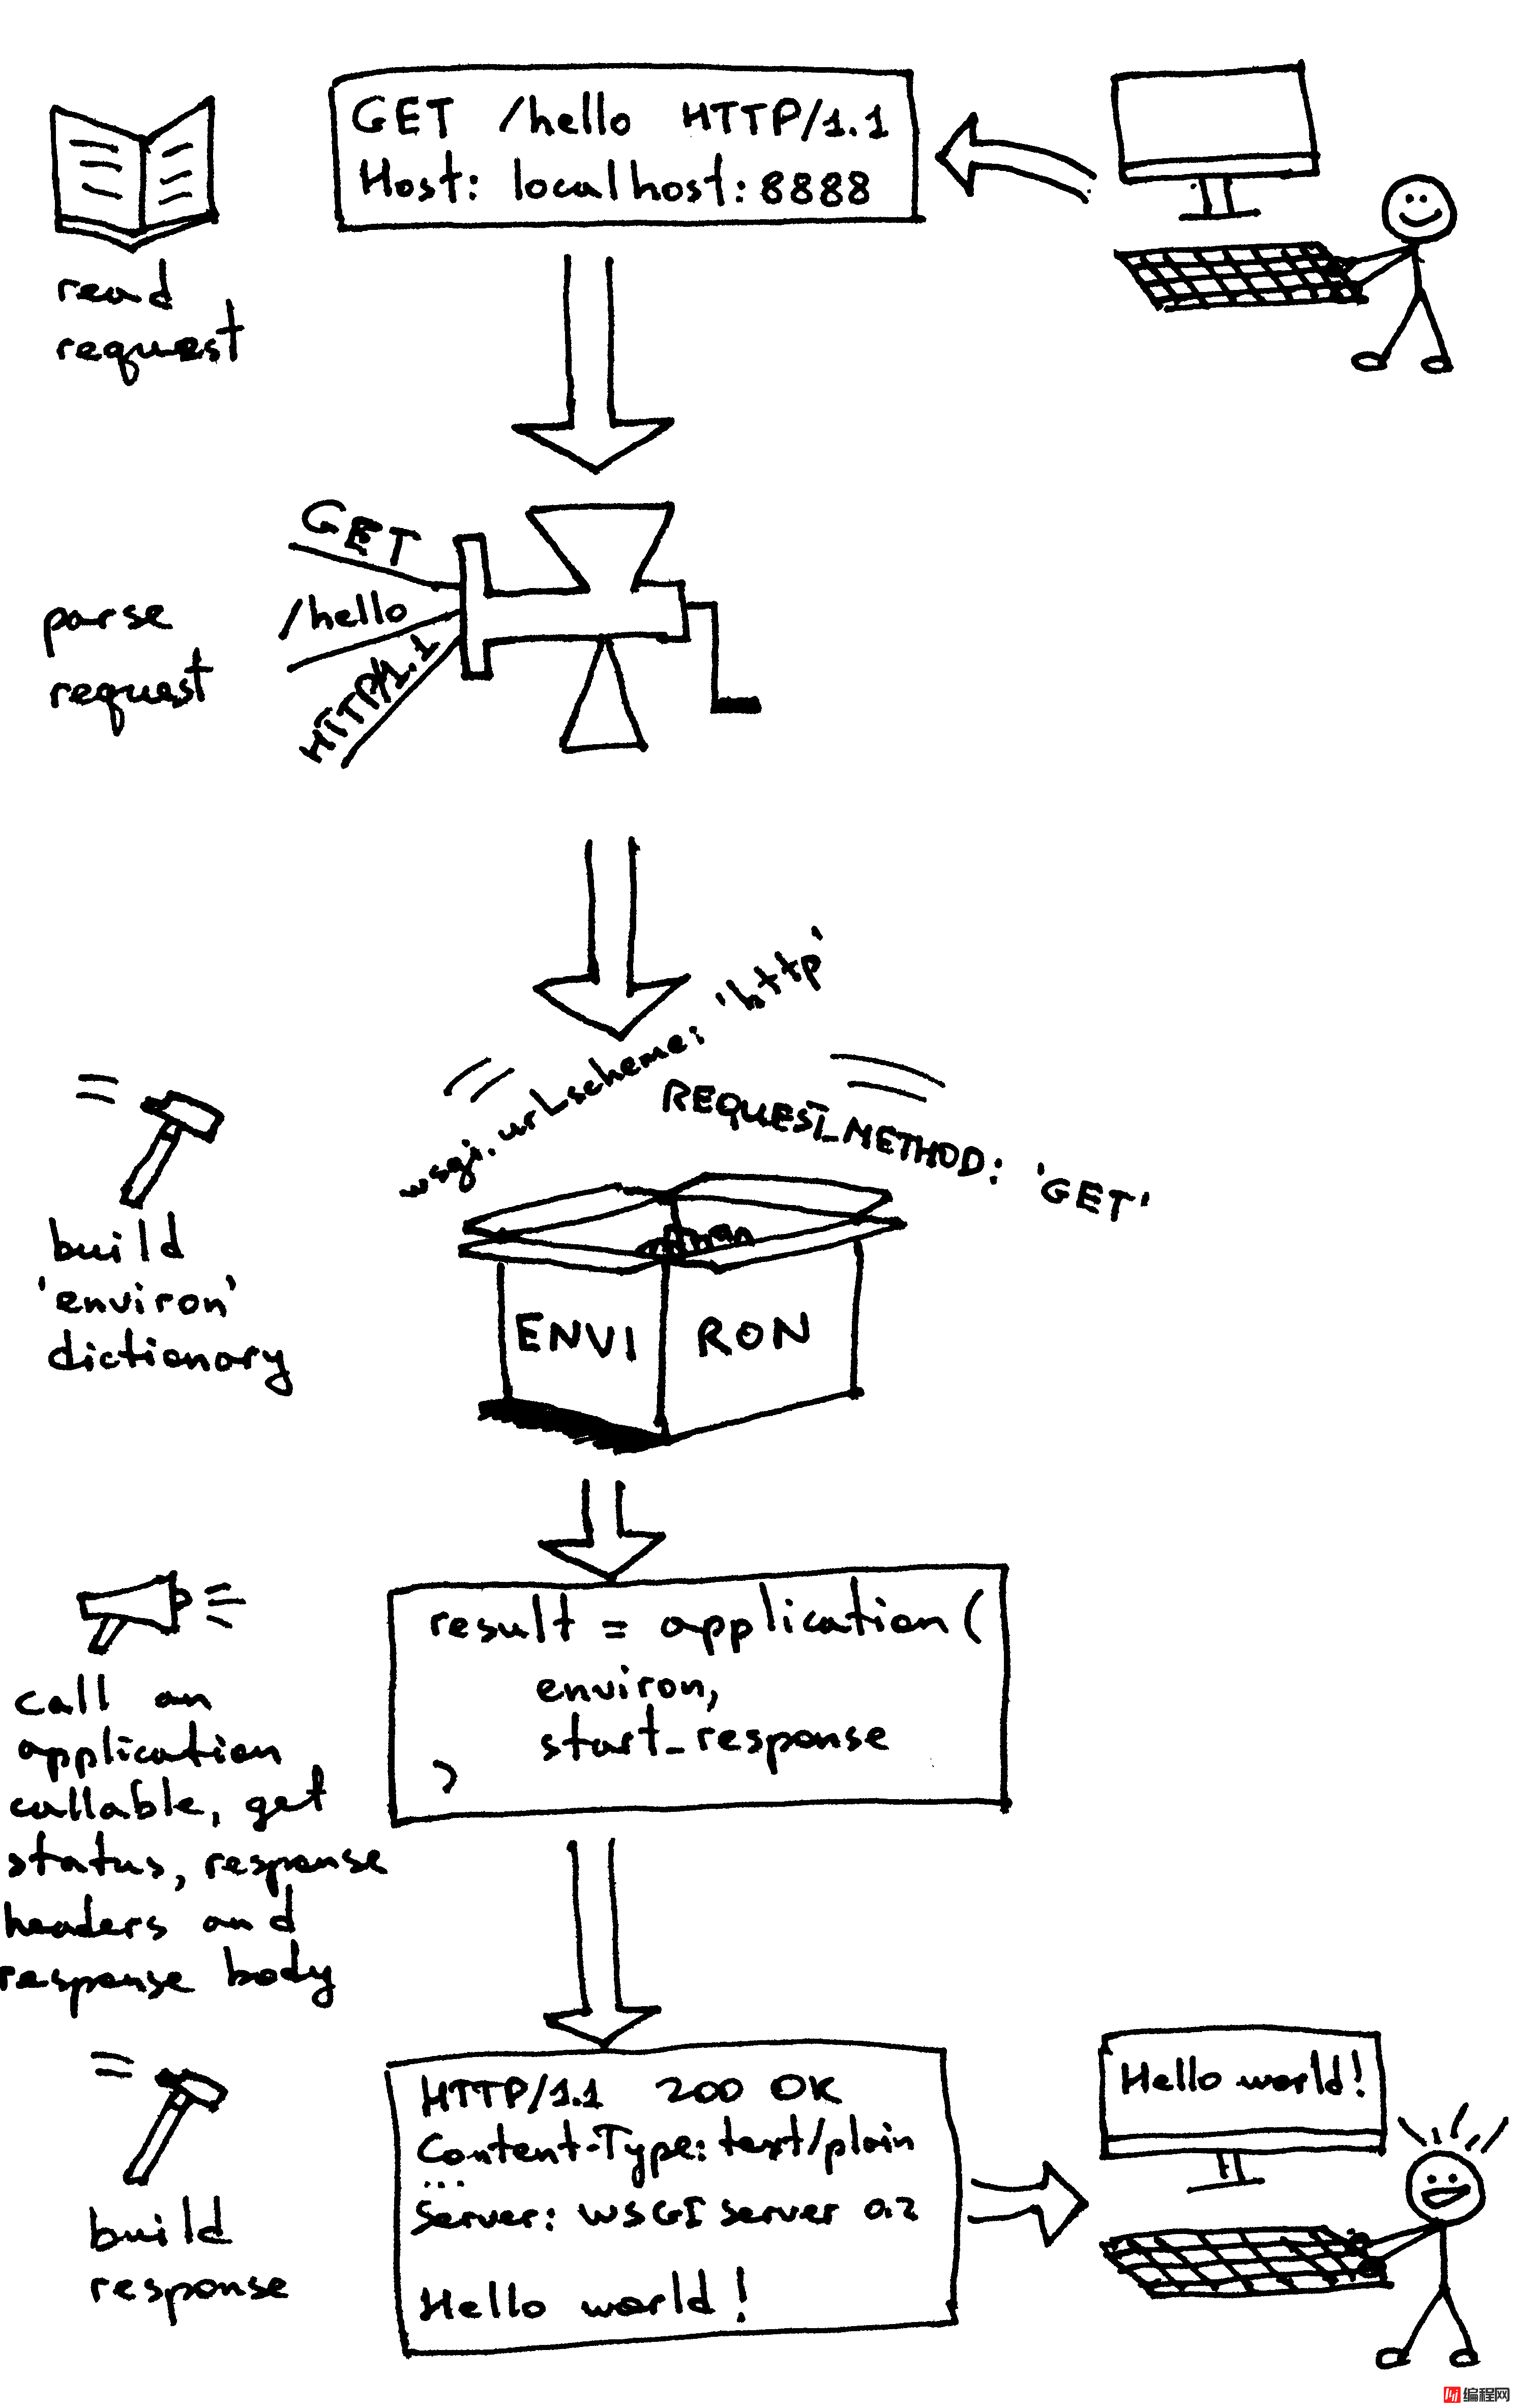 GET /hello HTTP/1.1
Host: localhost:8888
read
request
GET
/hello
HTTP/1.1
parse
request
wsgi.url_scheme: 'http'
REQUEST_METHOD: 'GET'
build
'environ'
dictionary
ENVI RON
result = application(
environ,
start_response
)
call an
application
callable, get
status, response
headers and
response body
HTTP/1.1 200 OK
Content-Type: text/plain
...
Server: WSGIServer 0.2
Hello world!
build
response
Hello world!
编程网